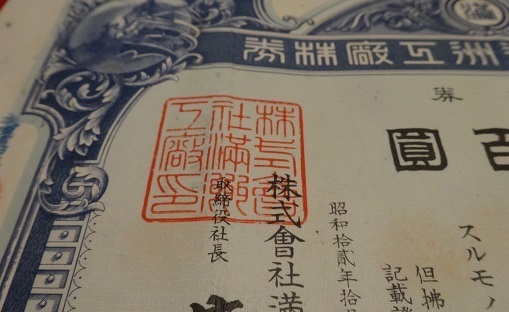 洲工廠株券
券
百圓
スルモノ
但拂
記載
昭和拾貳年拾
株式會社満
取締役社長
株式會
社滿洲
工廠印